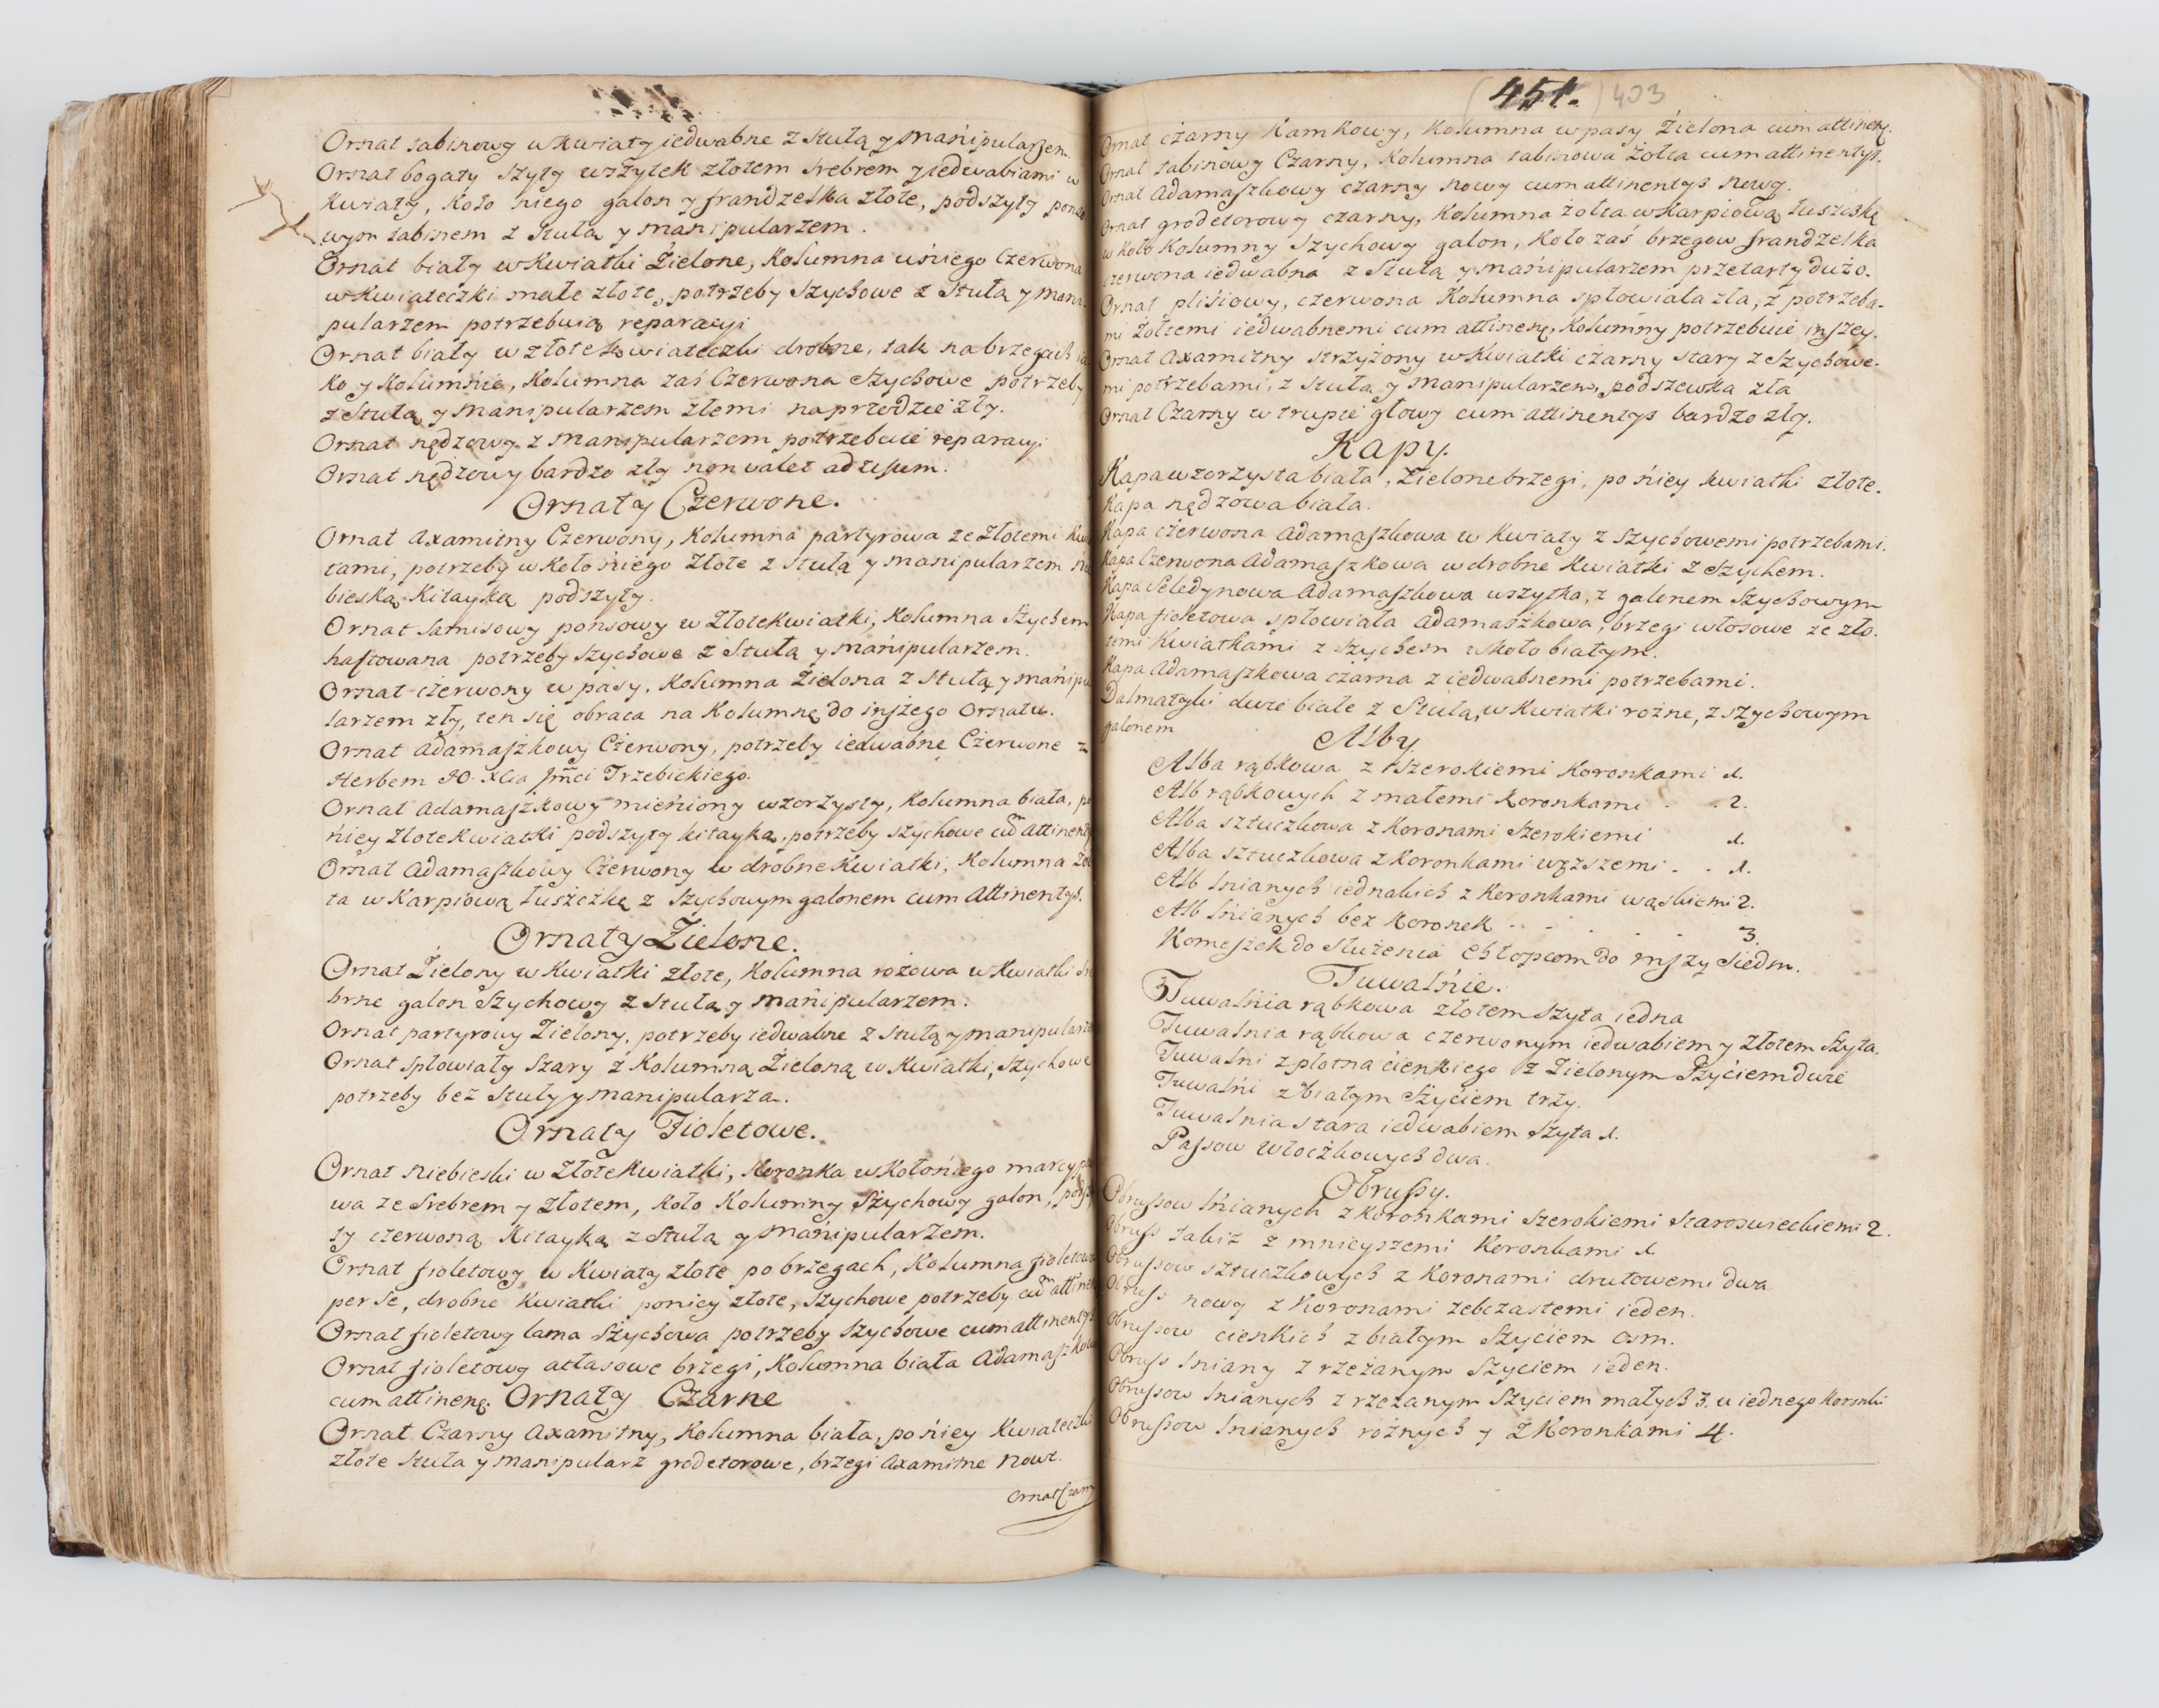 Ornat tabinowy w kwiaty iedwabne z stułą y manipularzem
Ornat bogaty szyty wszytek złotem srebrem y iedwabiami w
kwiaty, koło niego galon y frandzelka złote, podszyty ponso
wym tabinem z stułą y manipularzem.
Ornat biały w kwiatki Zielone, Kolumna u niego Czerwona
w kwiateczki małe złote, potrzeby szychowe z stułą y mani
pularzem potrzebuią reparacyi
Ornat biały w złote kwiateczki drobne, tak na brzegach ia
ko y Kolumnie, Kolumna zaś Czerwona Szychowe potrzeby
z Stułą y manipularzem złemi naprzedzie zły.
Ornat nędzowy z manipularzem potrzebuie reparacyi
Ornat nędzowy bardzo zły non valet ad usum.
Ornaty Czerwone.
Ornat Axamitny Czerwony, Kolumna partyrowa ze złotemi kwia
tami, potrzeby w koło niego złote z stułą y manipularzem nie
bieską Kitayką podszyty.
Ornat lamisowy ponsowy w złote kwiatki, Kolumna szychem
haftowana potrzeby szychowe z Stułą y manipularzem.
Ornat czerwony w pasy, Kolumna Zielona z stułą y manipu
larzem zły, ten się obraca na Kolumnę do inszego Ornatu.
Ornat adamaszkowy Czerwony, potrzeby iedwabne Czerwone z
Herbem JO. Xcia Jmci Trzebickiego.
Ornat adamaszkowy mieniony wzorzysty, Kolumna biała, po
niey złote kwiatki podszyty kitayką, potrzeby szychowe cum attinenty
Ornat Adamaszkowy Czerwony w drobne kwiatki, Kolumna żoł
ta w Karpiową łuszczkę z szychowym galonem cum Attinentys.
Ornaty Zielone.
Ornat Zielony w kwiatki złote, Kolumna rożowa w kwiatki sre
brne galon szychowy z stułą y manipularzem.
Ornat partyrowy Zielony, potrzeby iedwabne z stułą y manipularze
Ornat spłowiały szary z Kolumną Zieloną w kwiatki, szychowe
potrzeby bez stuły y manipularza.
Ornaty Fioletowe.
Ornat niebieski w złote kwiatki, Koronka w koło niego marcypa
wa ze srebrem y złotem, koło Kolumny szychowy galon, podszy
ty czerwoną Kitayką z stułą y manipularzem.
Ornat fioletowy w kwiaty złote po brzegach, Kolumna fioletowa
per se, drobne kwiatki po niey złote, szychowe potrzeby cum attinen
Ornat fioletowy lama szychowa potrzeby szychowe cum attinentys
Ornat fioletowy atłasowe brzegi, Kolumna biała Adamaszkow
cum attinen. Ornaty Czarne
Ornat Czarny Axamitny, Kolumna biała, po niey kwiateczki
złote stuła y manipularz grodetorowe, brzegi Axamitne nowe.
Ornat Czarny
451. 403
Ornat czarny Kamkowy, Kolumna w pasy Zielona cum attinen.
Ornat tabinowy Czarny, Kolumna tabinowa Zołta cum attinentys.
Ornat Adamaszkowy czarny nowy cum attinentys nowy.
Ornat grodetorowy czarny, Kolumna żołta w Karpiową łuszczkę
w koło Kolumny szychowy galon, koło zaś brzegow frandzelka
czerwona iedwabna z Stułą y manipularzem przetarty dużo.
Ornat plisiowy, czerwona Kolumna spłowiała zła, z potrzeba-
mi Zołtemi iedwabnemi cum attinen, Kolumny potrzebuie inszey.
Ornat Axamitny strzyżony w kwiatki czarny stary z szychowe-
mi potrzebami, z stułą y manipularzem, podszewka zła
Ornat Czarny w trupie głowy cum attinentys bardzo zły.
Kapy.
Kapa wzorzysta biała, Zielone brzegi, po niey kwiatki złote.
Kapa nędzowa biała.
Kapa czerwona adamaszkowa w kwiaty z szychowemi potrzebami.
Kapa Czerwona Adamaszkowa w drobne kwiatki z szychem.
Kapa Seledynowa Adamaszkowa wszytka, z galonem szychowym
Kapa fioletowa spłowiała adamaszkowa, brzegi włosowe ze zło-
temi kwiatkami z szychem w koło białym.
Kapa Adamaszkowa czarna z iedwabnemi potrzebami.
Dalmatyki dwie białe z Stułą, w kwiatki rożne, z szychowym
galonem
Alby.
Alba rąbkowa z szerokiemi koronkami 1.
Alb rąbkowych z małemi koronkami . . 2.
Alba sztuczkowa z koronami szerokiemi 1.
Alba sztuczkowa z koronkami węzszemi . . 1.
Alb lnianych iednakich z koronkami wąskiemi 2.
Alb lnianych bez koronek . . . . . 3.
Komeszek do służenia chłopcom do mszy siedm.
Tuwalnie.
Tuwalnia rąbkowa złotem szyta iedna
Tuwalnia rąbkowa czerwonym iedwabiem y złotem szyta.
Tuwalni z płotna cienkiego z Zielonym szyciem dwie
Tuwalni z białym szyciem trzy.
Tuwalnia stara iedwabiem szyta 1.
Passow włoczkowych dwa.
Obrussy.
Obrussow lnianych z koronkami szerokiemi staroswieckiemi 2.
Obruss takiz z mnieyszemi koronkami 1.
Obrussow sztuczkowych z koronami drutowemi dwa
Obruss nowy z koronami zebczastemi ieden.
Obrussow cienkich z białym szyciem osm.
Obruss lniany z rzezanym szyciem ieden.
Obrussow lnianych z rzezanym szyciem małych 3. u iednego koronki
Obrussow lnianych rożnych y z koronkami 4.